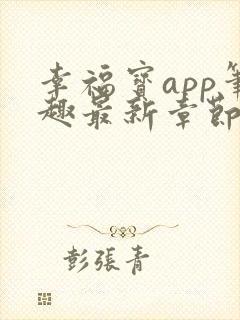 幸福寳app筆
趣最新章節
彭張青